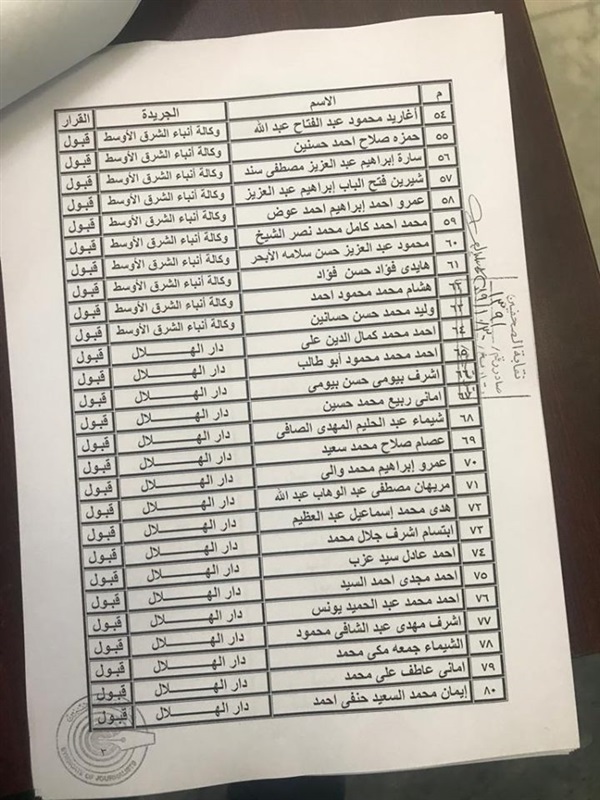 م الاسم الجريدة القرار
٥٤ أغاريد محمود عبد الفتاح عبد الله وكالة أنباء الشرق الأوسط قبول
٥٥ حمزه صلاح احمد حسنين وكالة أنباء الشرق الأوسط قبول
٥٦ سارة إبراهيم عبد العزيز مصطفى سند وكالة أنباء الشرق الأوسط قبول
٥٧ شيرين فتح الباب إبراهيم عبد العزيز وكالة أنباء الشرق الأوسط قبول
٥٨ عمرو احمد إبراهيم احمد عوض وكالة أنباء الشرق الأوسط قبول
٥٩ محمد احمد كامل محمد نصر الشيخ وكالة أنباء الشرق الأوسط قبول
٦٠ محمود عبد العزيز حسن سلامه الأبحر وكالة أنباء الشرق الأوسط قبول
٦١ هايدى فؤاد حسن فؤاد وكالة أنباء الشرق الأوسط قبول
٦٢ هشام محمد محمود احمد وكالة أنباء الشرق الأوسط قبول
٦٣ وليد محمد حسن حسانين وكالة أنباء الشرق الأوسط قبول
٦٤ احمد محمد كمال الدين على دار الهـــــلال قبول
احمد محمد محمود أبو طالب دار الهـــــلال قبول
اشرف بيومى حسن بيومى دار الهـــــلال قبول
امانى ربيع محمد حسين دار الهـــــلال قبول
٦٨ شيماء عبد الحليم المهدى الصافى دار الهـــــلال قبول
٦٩ عصام صلاح محمد سعيد دار الهـــــلال قبول
٧٠ عمرو إبراهيم محمد والى دار الهـــــلال قبول
٧١ مريهان مصطفى عبد الوهاب عبد الله دار الهـــــلال قبول
٧٢ هدى محمد إسماعيل عبد العظيم دار الهـــــلال قبول
٧٣ ابتسام اشرف جلال محمد دار الهـــــلال قبول
٧٤ احمد عادل سيد عزب دار الهـــــلال قبول
٧٥ احمد مجدى احمد السيد دار الهـــــلال قبول
٧٦ احمد محمد عبد الحميد يونس دار الهـــــلال قبول
٧٧ اشرف مهدى عبد الشافى محمود دار الهـــــلال قبول
٧٨ الشيماء جمعه مكى محمد دار الهـــــلال قبول
٧٩ امانى عاطف على محمد دار الهـــــلال قبول
٨٠ إيمان محمد السعيد حنفى احمد دار الهـــــلال قبول
نقابة الصحفيين
صادر رقم
٢
SYNDICATE OF JOURNALISTS